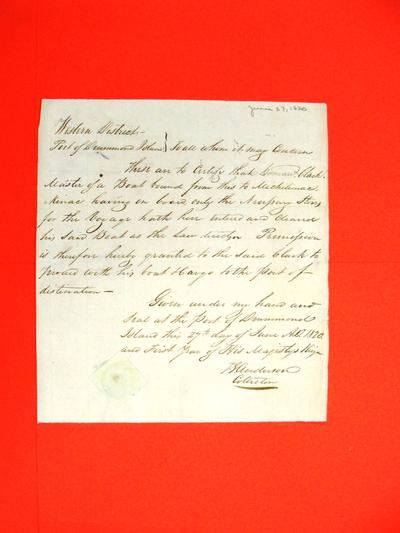 June 27, 1820
Western District
Port of Drummond Island } To all whom it may Concern
These are to Certify that Clark
Master of a Boat bound from this to Michilimac
kinac having on board only the Necessary Stores
for the Voyage hath here entered and cleared
his said Boat as the Law directs Permission
is therefore hereby granted to the said Clark to
proceed with his boat & Cargo to the port of
distination —
Given under my hand and
Seal at the Port of Drummond
Island this 27th day of June AD. 1820
and First Year of His Majestys Reign
Anderson
Collector